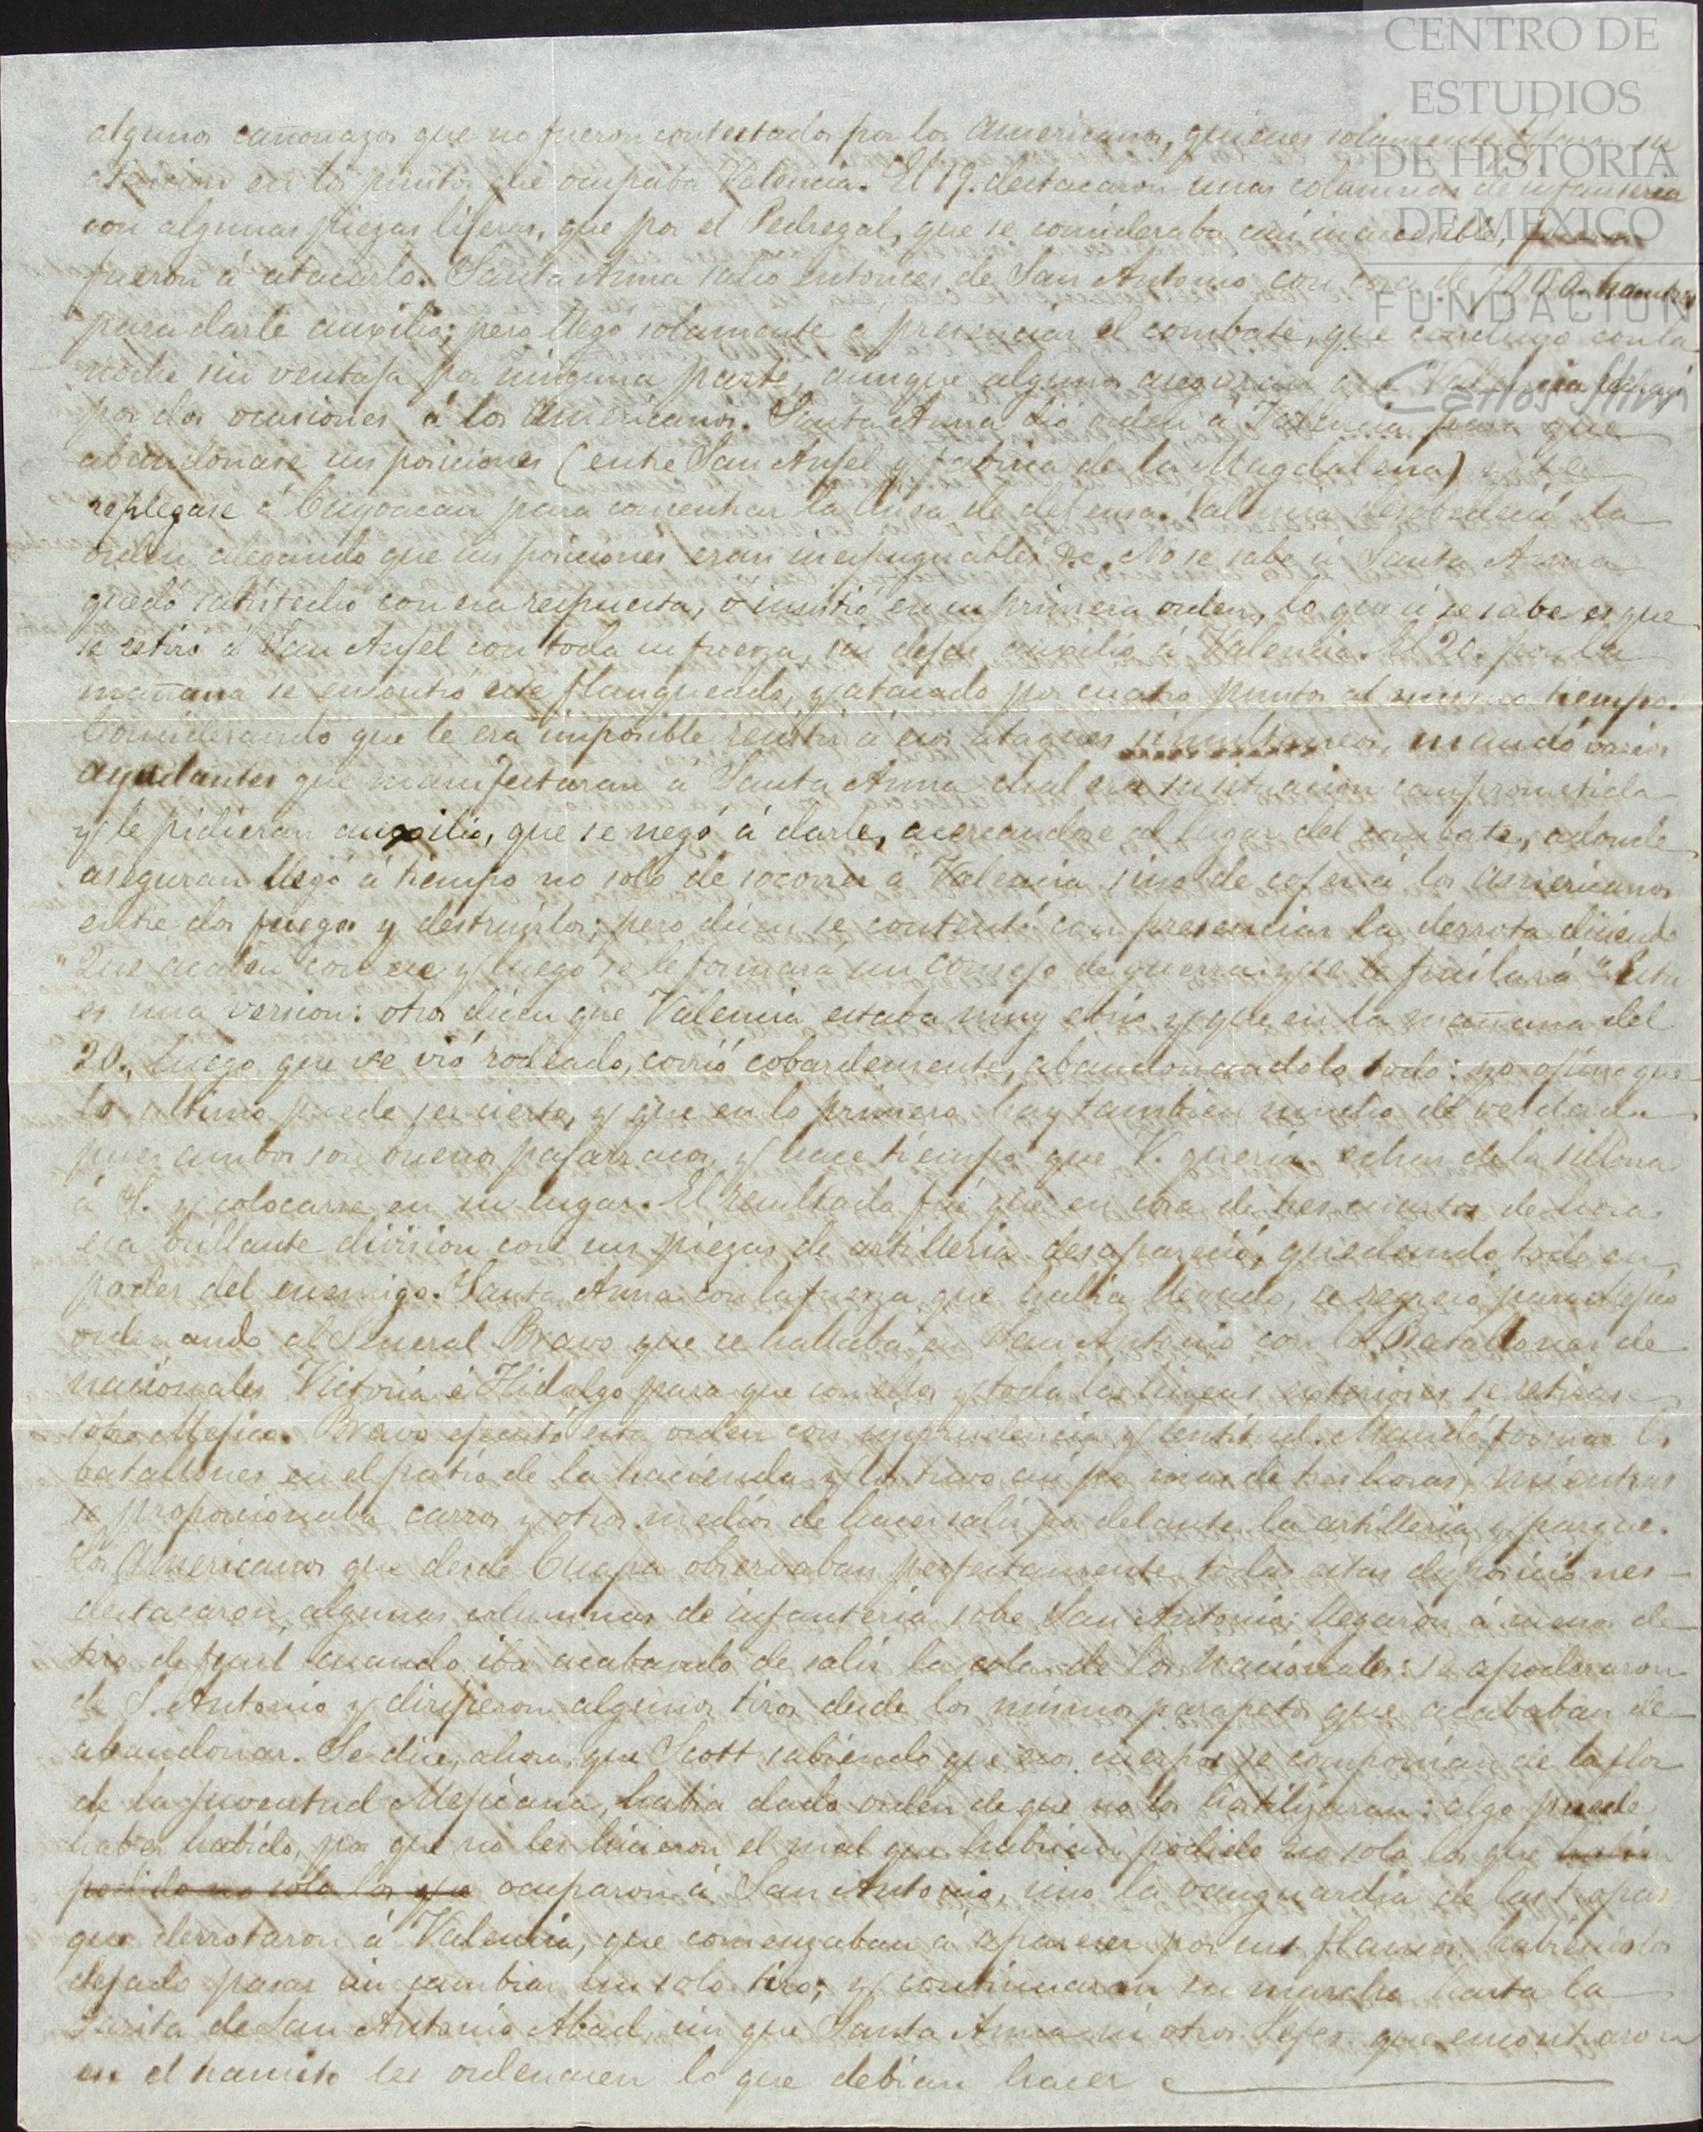 algunos cañonazos que no fueron contestados por los Americanos, quienes solamente fijaron su
atencion en los puntos que ocupaba Valencia. El 19. destacaron unas columnas de infanteria
con algunas piezas lijeras, que por el Pedregal, que se consideraba casi inaccesible,
fueron á atacarlo. Santa Anna salió entonces de San Antonio con cosa de hombres
para darle auxilio; pero llegó solamente á presenciar el combate, que concluyó con la
noche sin ventaja por ninguna parte, aunque algunos aseguran que Valencia rechazó
por dos ocasiones á los Americanos. Santa Anna dió orden á Valencia para que
abandonase sus posiciones (entre San Anjel y fabrica de la Magdalena) y se
replegase á Cuyoacan para concentrar la linea de defensa. Valencia desobedeció la
orden alegando que sus posiciones eran inespugnables &c. No se sabe si Santa Anna
quedó satisfecho con esa respuesta, ó insistió en su primera orden, lo que si se sabe es que
se retiró á San Anjel con toda su fuerza, sin dejar auxilio á Valencia. El 20. por la
mañana se encontró este flanqueado, y atacado por cuatro puntos al mismo tiempo.
Considerando que le era imposible resistir á esos ataques simultaneos, mandó varios
ayudantes que manifestaran á Santa Anna cual era su situacion comprometida
y le pidieran auxilio, que se negó á darle, acercandose al lugar del combate, adonde
aseguran llegó á tiempo no solo de socorrer á Valencia sino de cojer á los Americanos
entre dos fuegos y destruirlos; pero dicen se contentó con presenciar la derrota diciendo
"Que acaben con ese y luego se le formará un consejo de guerra y se le fusilará" Esta
es una version: otros dicen que Valencia estaba muy ebrio y que en la mañana del
20., luego que se vió rodeado, corrió cobardemente, abandonandolo todo: yo opino que
lo ultimo puede ser cierto, y que en lo primero hay tambien mucho de verdad
pues ambos son buenos pajarracos, y hace tiempo que V. queria echar de la sillona
á S. y colocarse en su lugar. El resultado fué que en cosa de tres cuartos de hora
esa brillante division con sus piezas de artilleria desapareció, quedando todo en
poder del enemigo. Santa Anna con la fuerza que habia llevado, se regresó para Mejico
ordenando al General Bravo que se hallaba en San Antonio con los Batallones de
nacionales Victoria é Hidalgo para que con ellos y toda las lineas exteriores se retirase
sobre Mejico. Bravo ejecutó esta orden con imprudencia y lentitud. Mandó formar los
batallones en el patio de la hacienda y los tuvo asi por mas de tres horas, mientras
se proporcionaba carros y otros medios de hacer salir por delante la artilleria y parque.
Los Americanos que desde Cuapa observaban perfectamente todas estas disposiciones
destacaron algunas columnas de infanteria sobre San Antonio; llegaron á menos de
tiro de fusil cuando iba acabando de salir la cola de los Nacionales: se apoderaron
de S. Antonio y dirijieron algunos tiros desde los mismos parapetos que acababan de
abandonar. Se dice, ahora, que Scott sabiendo que esos cuerpos se componian de la flor
de la juventud Mejicana, habia dado orden de que no los hostilizaran: algo puede
haber habido, por que no les hicieron el mal que habrian podido no solo los que habian
podido no solo los que ocuparon á San Antonio, sino la vanguardia de las tropas
que derrotaron á Valencia, que comenzaban á aparecer por sus flancos, habiendolos
dejado pasar sin cambiar un solo tiro; y continuaron su marcha hasta la
Garita de San Antonio Abad, sin que Santa Anna ni otros Jefes que encontraron
en el transito les ordenasen lo que debian hacer
CENTRO DE
ESTUDIOS
DE HISTORIA
DE MEXICO
FUNDACION
Carlos Slim